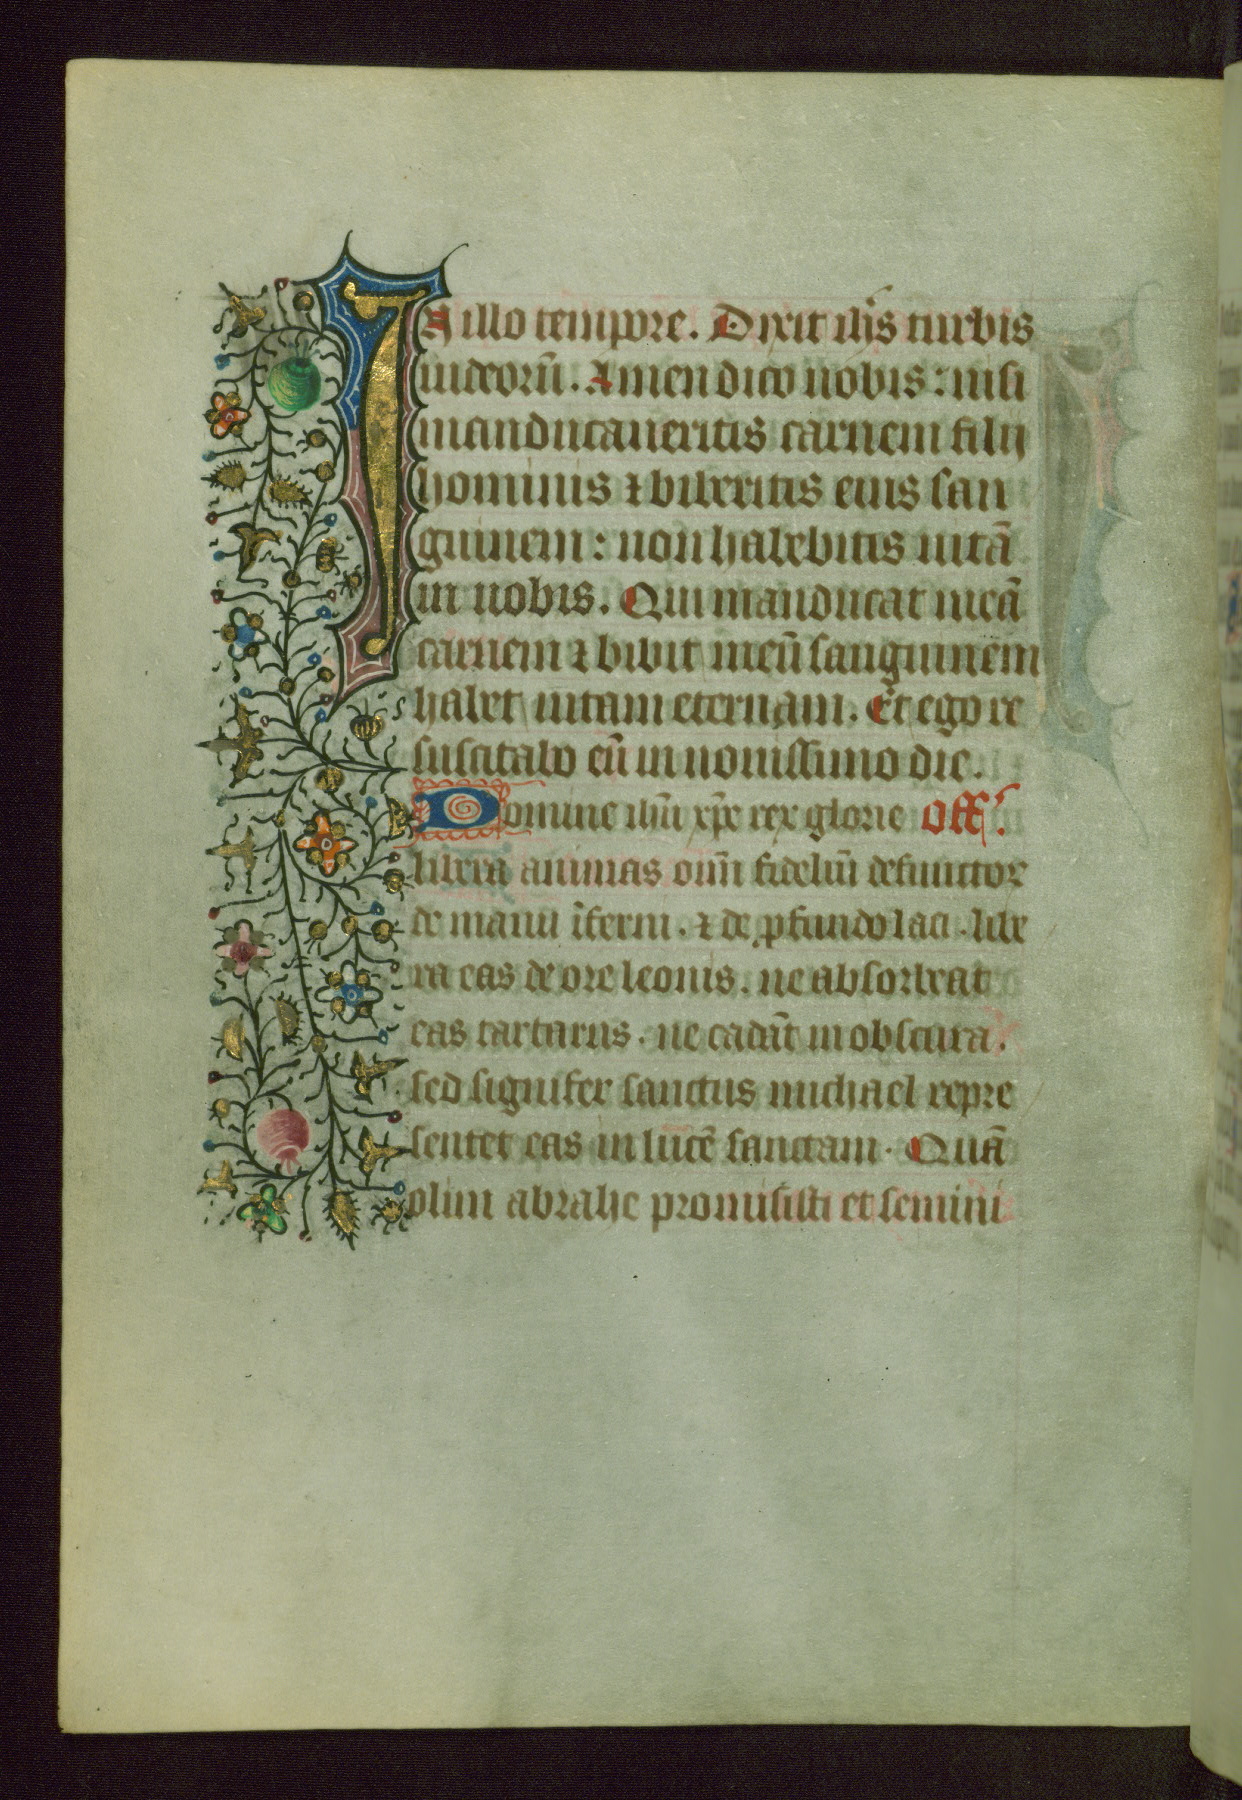 In illo tempore. Dixit ihs turbis
iudeorū. Amen dico vobis: nisi
manducaueritis carnem filij
hominis ⁊ biberitis eius san
guinem: non habebitis uitā
in uobis. Qui manducat meā
carnem ⁊ bibit meū sanguinem
habet uitam eternam. Et ego re
suscitabo eū in nouissimo die.
Domine ihū xp̄e rex glorie Off̄.
libera animas om̄ fideliū defunctor
de manu īferni. ⁊ de ꝓfundo laci. libe
ra eas de ore leonis. ne absorbeat
eas tartarus. ne cadāt in obscura.
sed signifer sanctus michael repre
sentet eas in lucē sanctam. Quā
olim abrahe promisisti et semini